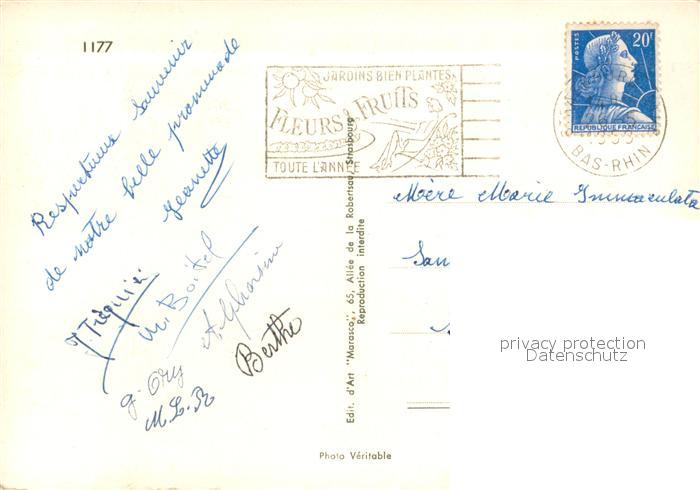 1177
Respectueux souvenir
de notre belle promenade
Jeanette
M. Boitel
Alphonsine
g. Ory
Berthe
M.L.R
JARDINS BIEN PLANTES
FLEURS & FRUITS
TOUTE L'ANNÉE
POSTES
20F
REPUBLIQUE FRANÇAISE
BAS-RHIN
Mère Marie Immaculata
San
Edit. d'Art "Marasco", 65, Allée de la Robertsau, Strasbourg
Reproduction interdite
privacy protection
Datenschutz
Photo Véritable